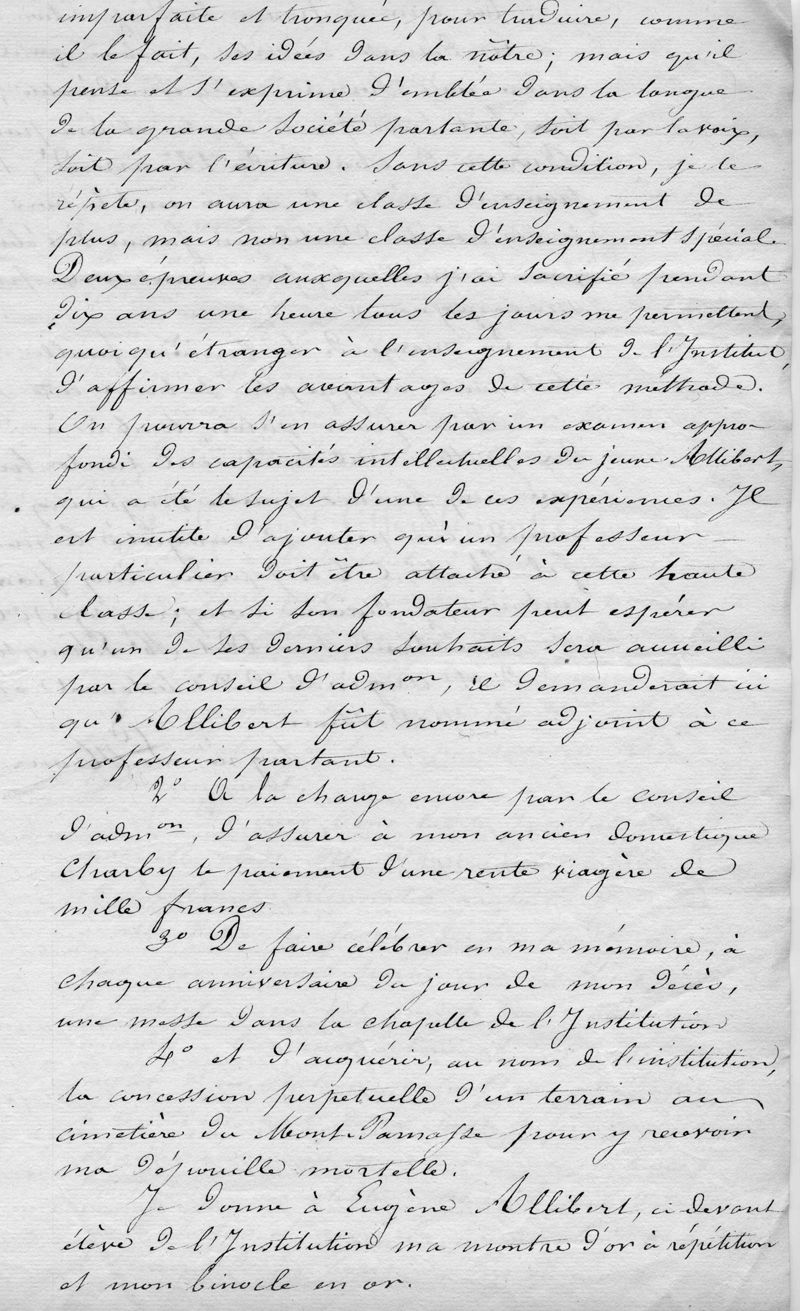 imparfaite et tronquée, pour traduire, comme
il le fait, ses idées dans la nôtre; mais qu'il
pense et s'exprime d'emblée dans la langue
de la grande société parlante, soit par la voix,
soit par l'écriture. Sans cette condition, je le
répète, on aura une classe d'enseignement de
plus, mais non une classe d'enseignement spécial.
Deux épreuves auxquelles j'ai sacrifié pendant
dix ans une heure tous les jours me permettent,
quoiqu'étranger à l'enseignement de l'Institut,
d'affirmer les avantages de cette méthode.
On pourra s'en assurer par un examen appro-
fondi des capacités intellectuelles du jeune Allibert,
qui a été le sujet d'une de ces expériences. Il
est inutile d'ajouter qu'un professeur
particulier doit être attaché à cette haute
classe; et si son fondateur peut espérer
qu'un de ses derniers souhaits sera accueilli
par le conseil d'admon, il demanderait ici
qu'Allibert fût nommé adjoint à ce
professeur parlant.
2° A la charge encore par le conseil
d'admon, d'assurer à mon ancien domestique
Charby le paiement d'une rente viagère de
mille francs
3° De faire célébrer en ma mémoire, à
chaque anniversaire du jour de mon décès,
une messe dans la chapelle de l'Institution
4° et d'acquérir, au nom de l'institution,
la concession perpetuelle d'un terrain au
cimetière du Mont Parnasse pour y recevoir
ma dépouille mortelle.
Je donne à Eugène Allibert, ci devant
élève de l'Institution ma montre d'or à répétition
et mon binocle en or.